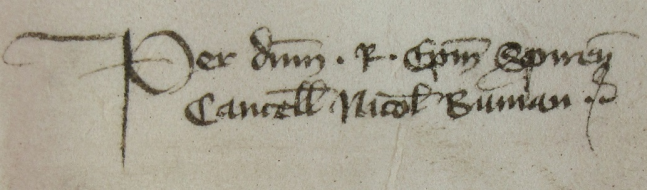 Per dnm . R . Epm Spireñ
Cancell Nicol Buman